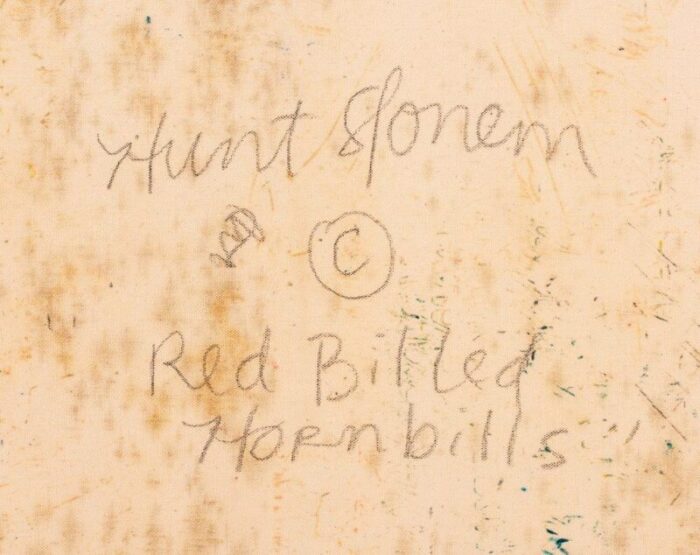 Hunt Slonem
©
Red Billed
Hornbills"